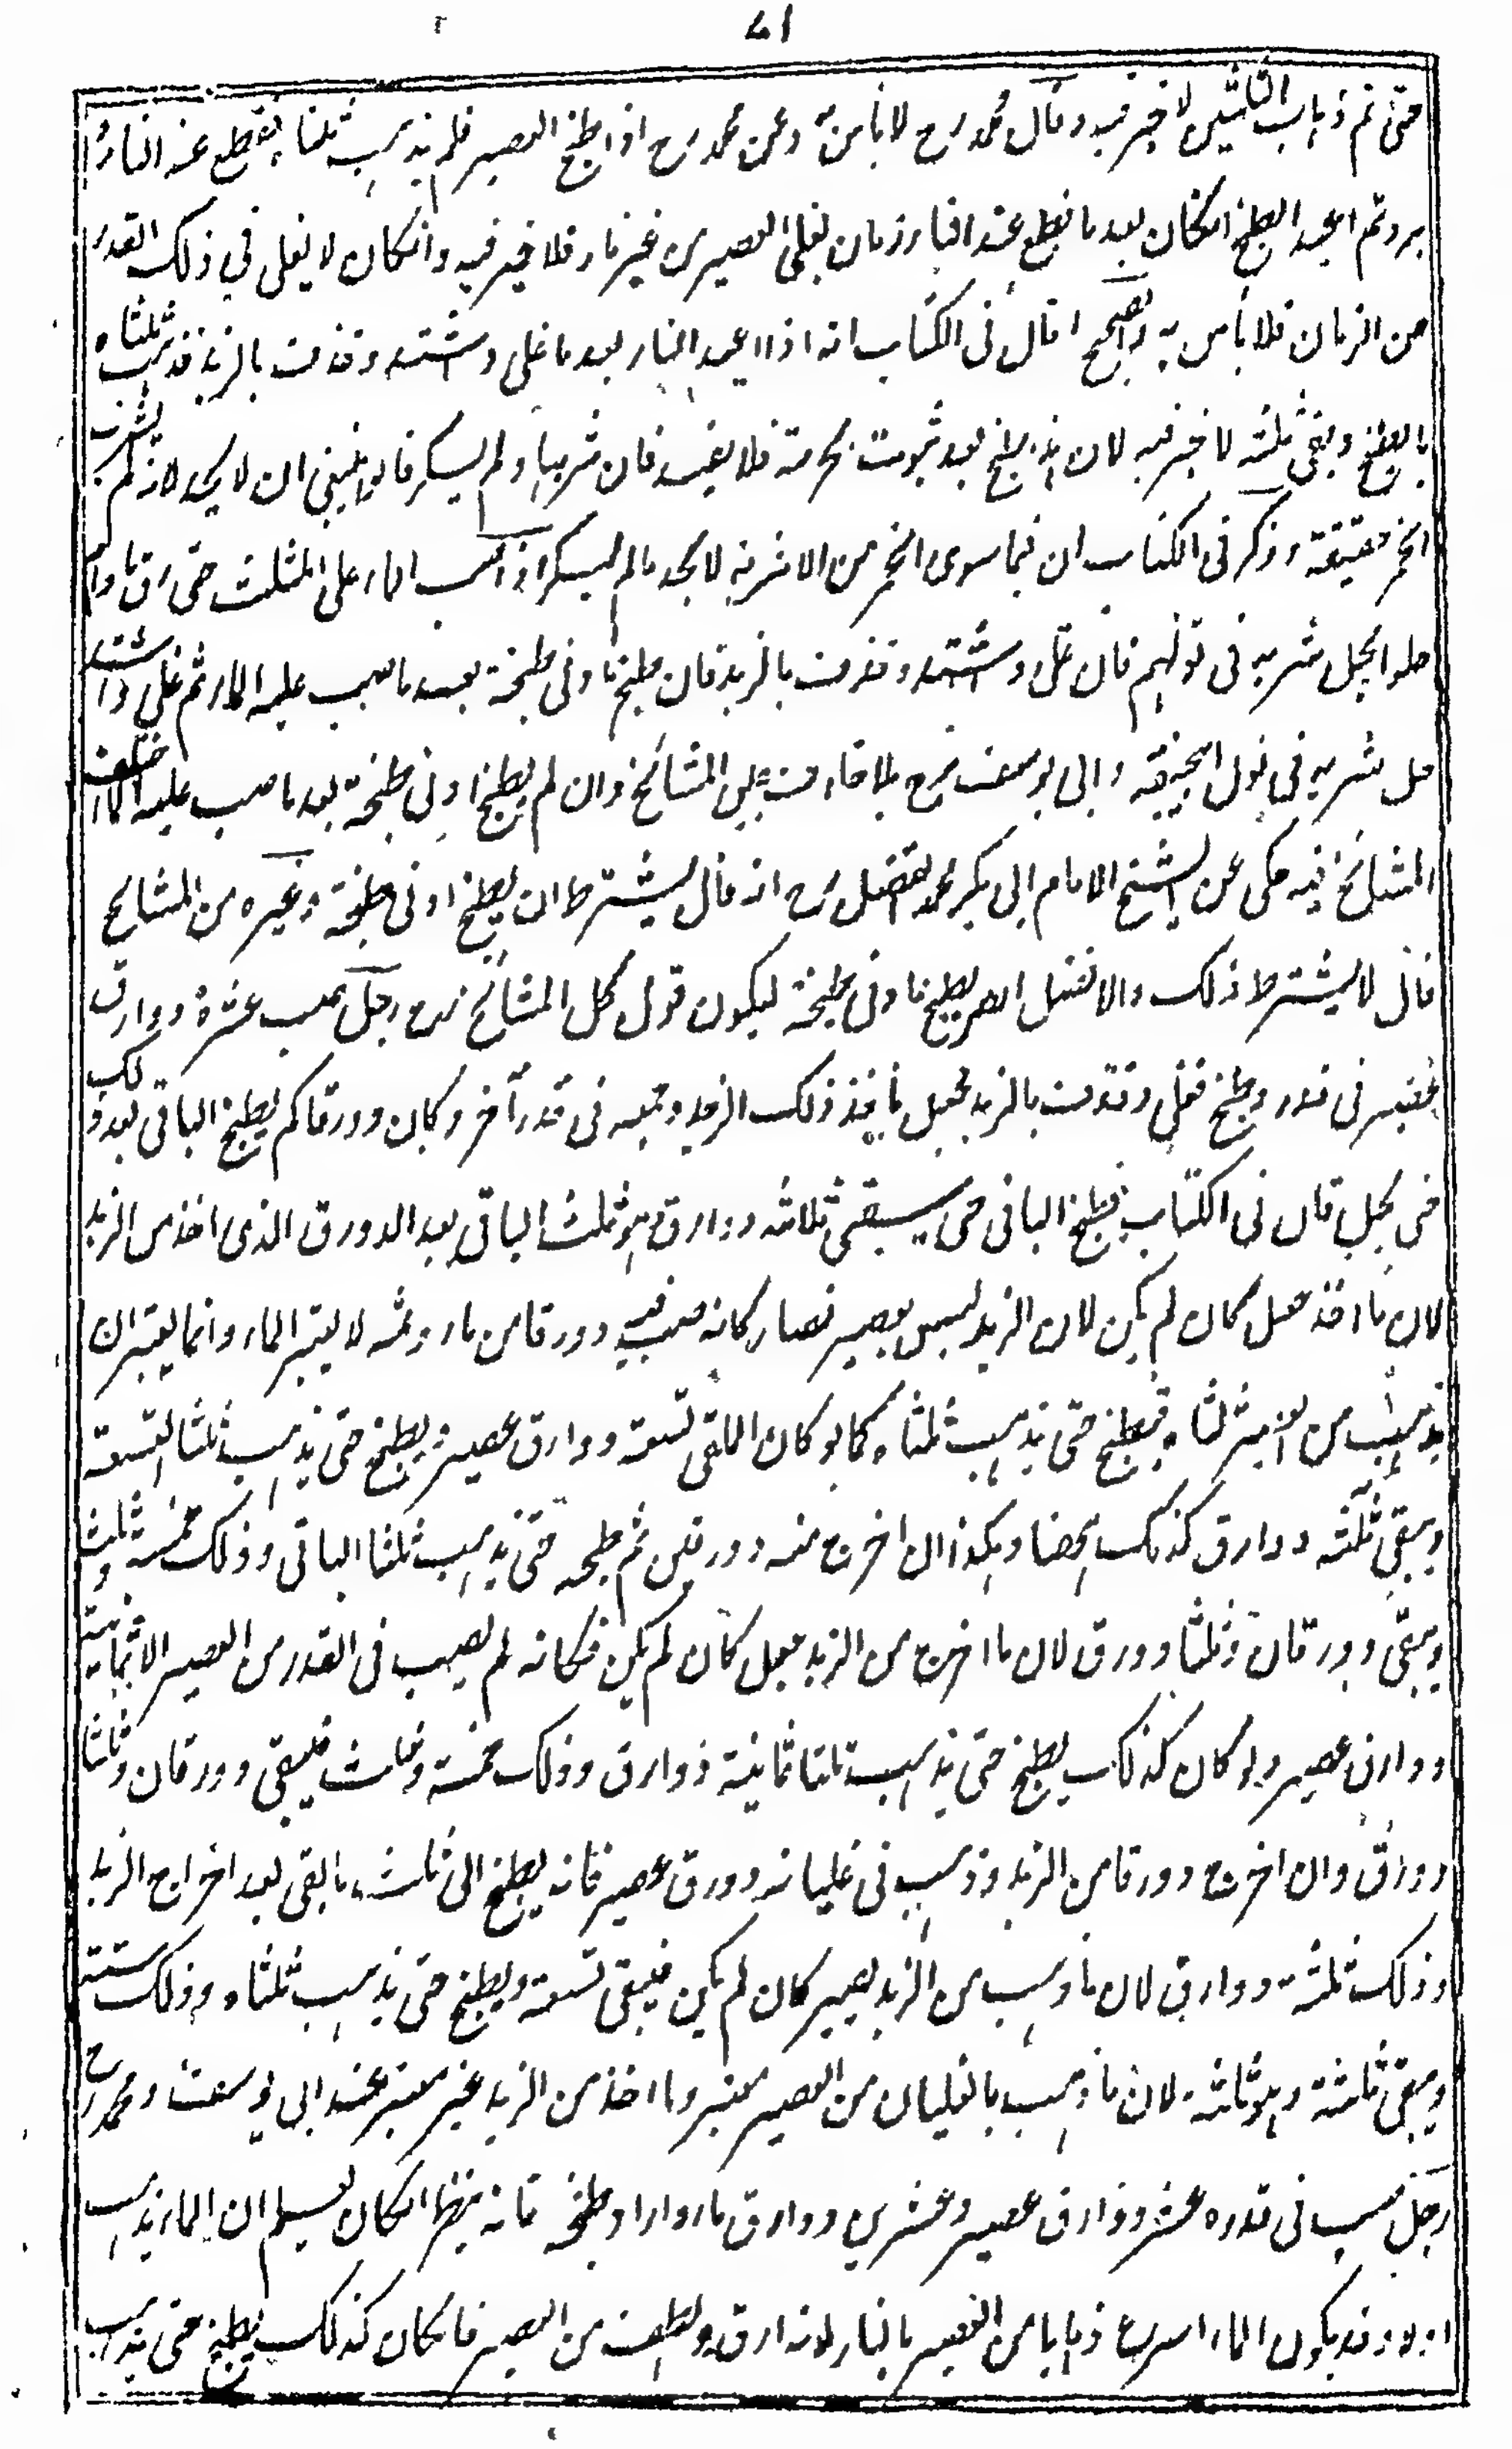 ٤١
حتى تم ذهاب الثلثين لا خير فيه وقال محمد رح لا بأس به وعن محمد رح اذا طبخ العصير فلم يذهب ثلثاه يقطع عنه النار
برد ثم اعيد الطبخ انكان بعد ما يقطع عنه النار زمان يغلى العصير من غير نار فلا خير فيه وانكان لا يغلى في ذلك القدر
من الزمان فلا بأس به قال فى الكتاب انه اذا اعيد النار بعد ما غلى واشتد وقذف بالزبد فذهب ثلثاه
بالطبخ وبقى ثلثه لا خير فيه لان هذا طبخ بعد ثبوت الحرمة فلا يفيد فان شربها ولم يسكر قالوا ينبغى ان لا يحد لانه لم يشرب
الخمر حقيقة وذكر فى الكتاب ان فيما سوى الخمر من الاشربة لا يحد ما لم يسكر اذا صب الماء على المثلث حتى رق
حلوا يحل شربه فى قولهم فان غلى واشتد وقذف بالزبد فان طبخ ادنى طبخة بعد ما صب عليه الماء ثم غلى واشتد
حل شربه فى قول ابيحنيفة وابى يوسف رح بلا خلاف بين المشائخ وان لم يطبخ ادنى طبخة بعد ما صب عليه الماء اختلف
المشائخ فيه حكى عن الشيخ الامام ابى بكر محمد بن الفضل رح انه قال يشترط ان يطبخ ادنى طبخة وغيره من المشائخ
قال لا يشترط ذلك والافضل ان يطبخ ادنى طبخة ليكون قول كل المشائخ رح رجل صب عشرة دوارق
عصير فى قدر وطبخ فغلى وقذف بالزبد فجعل ياخذ ذلك الزبد وجمعه فى قدر آخر وكان دورقا كم يطبخ الباقى بعد ذلك
حتى يحل قال فى الكتاب يطبخ الباقى حتى يبقى ثلاثه دوارق وهو ثلث الباقى بعد الدورق الذى اخذ من الزبد
لان ما اخذ جعل كان لم يكن لان الزبد ليس بعصير فصار كانه صب فيه دورقا من ماء وثمه لا يعتبر الماء وانما يعتبر ان
يذهب من العصير ثلثاه فيطبخ حتى يذهب ثلثاه كما لو كان الملقى تسعة دوارق عصير ويطبخ حتى يذهب ثلثا التسعة
ويبقى ثلثة دوارق كذلك ههنا وهكذا ان اخرج منه دورقين ثم طبخه حتى يذهب ثلثا الباقى وذلك خمسة وثلث
ويبقى دورقان وثلثا دورق لان ما اخرج من الزبد جعل كان لم يكن فكانه لم يصب فى القدر من العصير الا ثمانية
دوارق عصير ولو كان كذلك يطبخ حتى يذهب ثلثا ثمانية دوارق وذلك خمسة وثلث فيبقى دورقان وثلثا
دورق وان اخرج دورقا من الزبد وذهب فى غليانه دورق عصير فانه يطبخ الى ثلث ما بقى بعد اخراج الزبد
وذلك ثلثة دوارق لان ما ذهب من الزبد يصير كان لم يكن فيبقى تسعة ويطبخ حتى يذهب ثلثاه وذلك ستة
ويبقى ثلثة وهو ثلثه لان ما ذهب بالغليان من العصير معتبر وما اخذ من الزبد غير معتبر عند ابى يوسف ومحمد رح
رجل صب فى قدره عشر دوارق عصير وعشرين دوارق ماء واراد طبخه فانه ينظر انكان يعلم ان الماء يذهب
اولا وقد يكون الماء اسرع ذهابا من العصير بالنار لانه ارق والطف من العصير فانكان كذلك يطبخ حتى يذهب